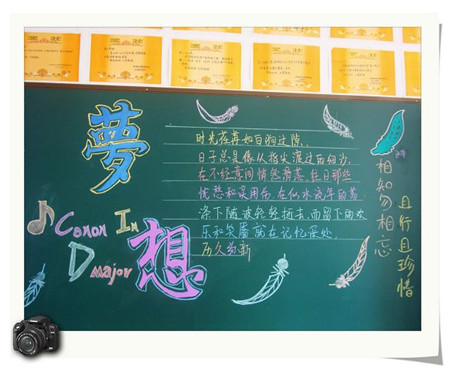 夢
想
Canon In
D major
时光荏苒如白驹过隙,
日子总是像从指尖渡过的细沙,
在不经意间悄然滑落.往日那些
忧愁和误用伤,在似水流年的荡
涤下随波轻轻逝去,而留下的欢
乐和笑靥就在记忆深处,
历久弥新
相知勿相忘
且行且珍惜